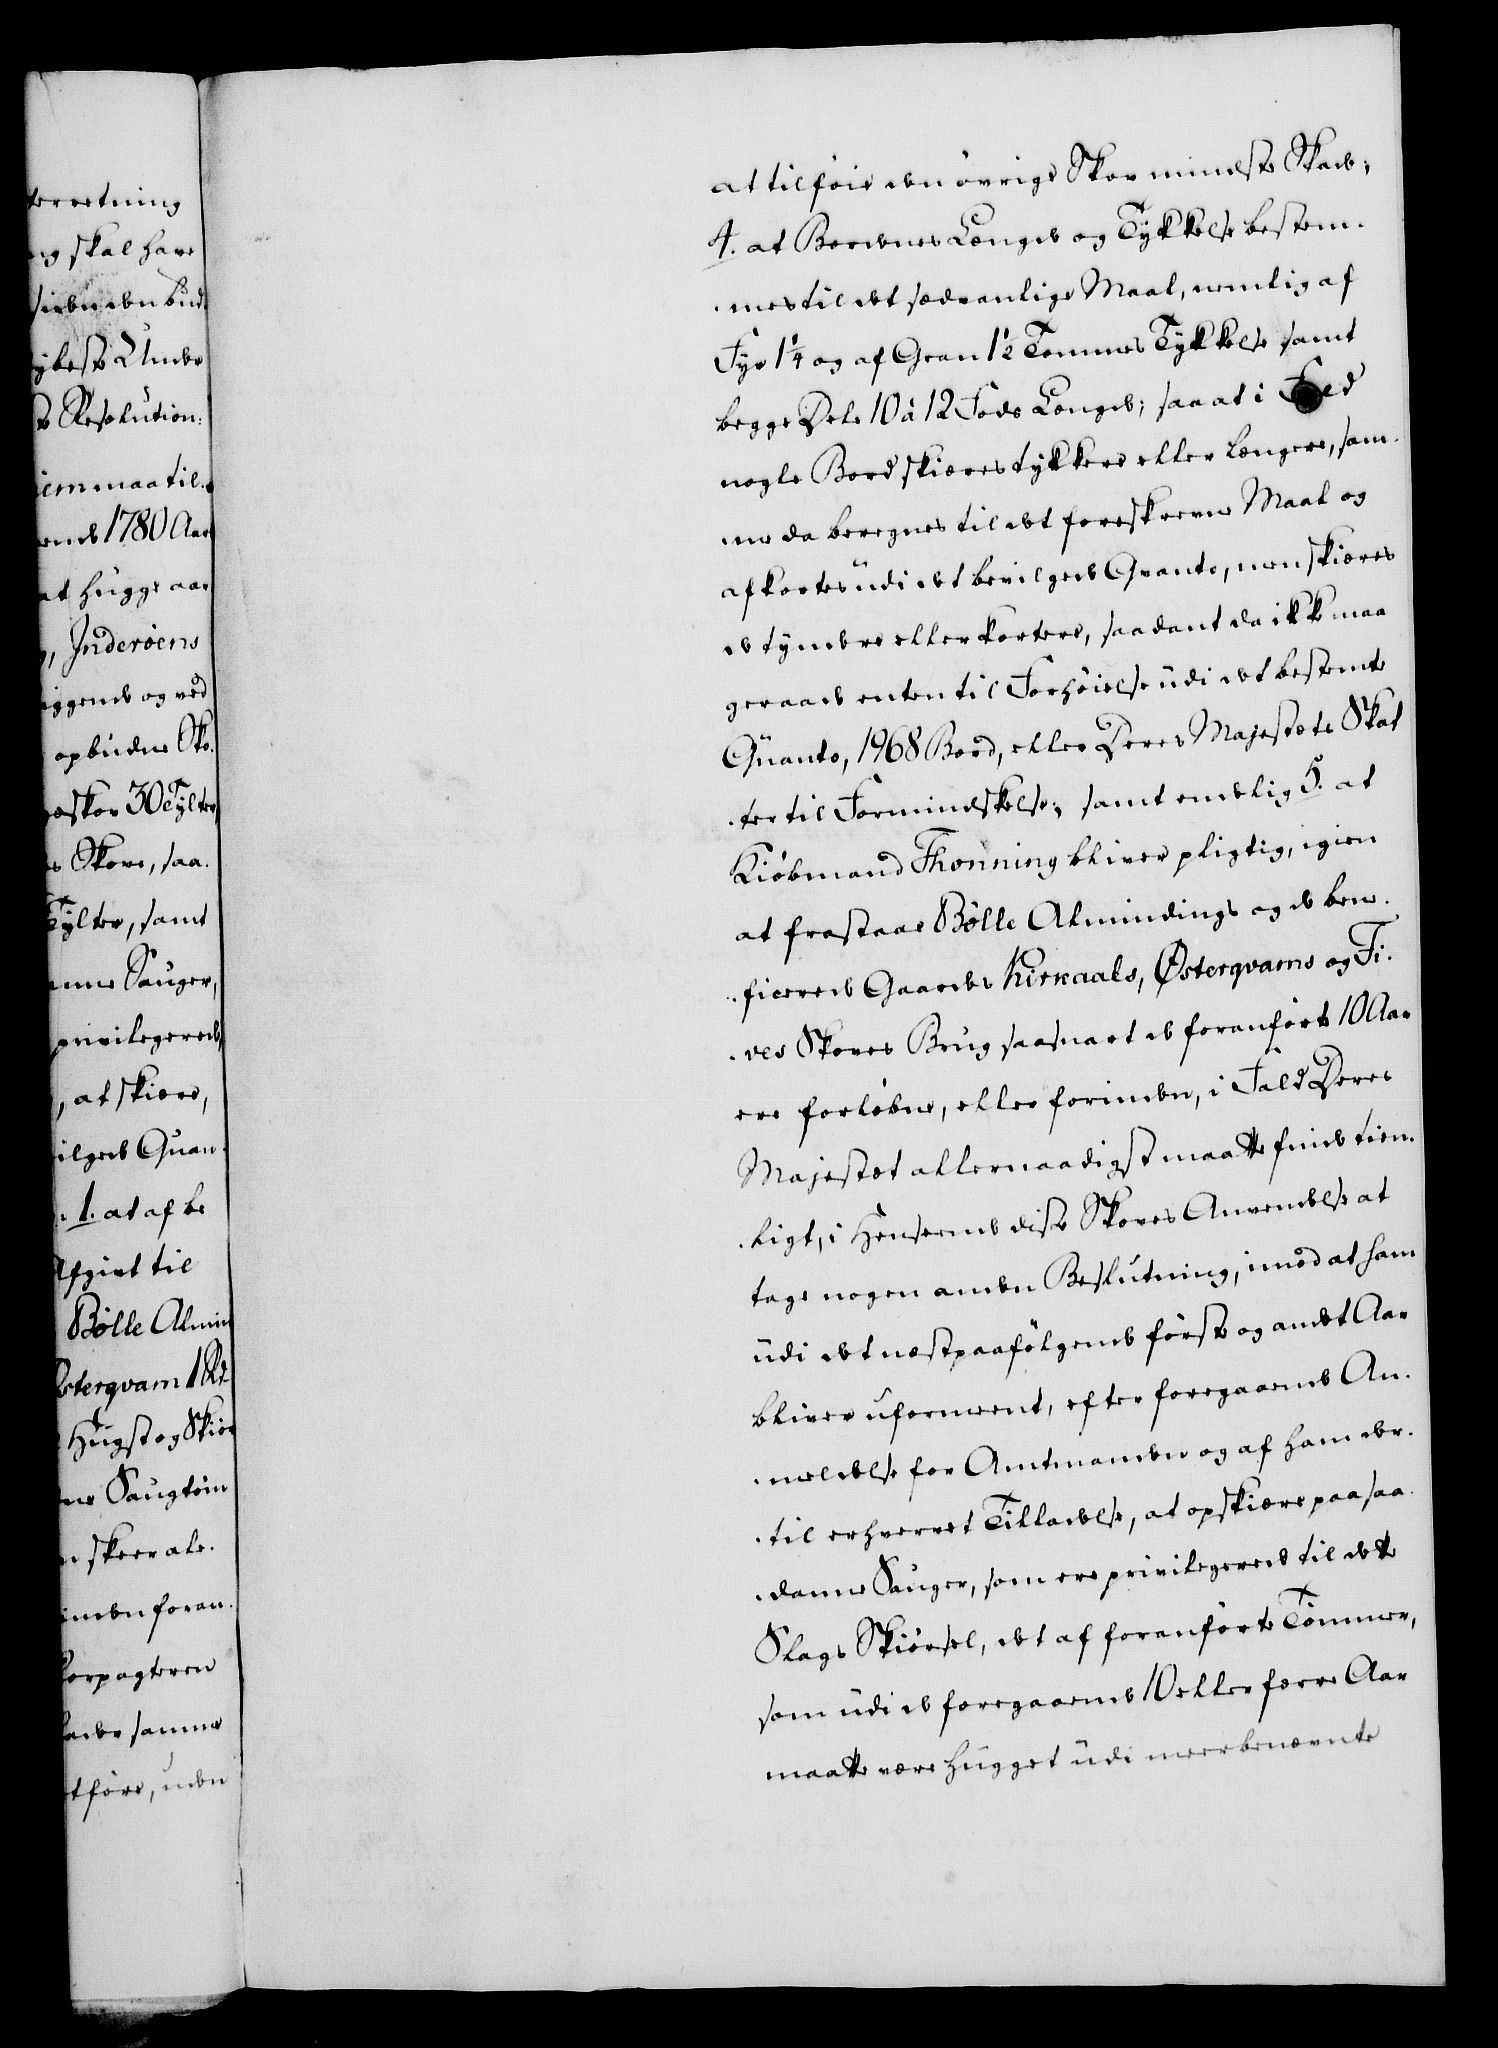 terretning
og skal have
siden den bud
ybeste Under
te Resolution:
iem maa til.
ende 1780 Aar
at hugge aar
, Inderöens
iggende og ved
opbudne Sko.
æskov 30 Tylter
es Skove, saa.
Tylter, samt
anne Sauger,
privilegerede,
, at skiære,
ilgede Quan.
. 1. at af be
Afgivt til
Bölle Almin
Østerqvam 1 Rd.
Hugst og Skiør
ne Saugtöm
n skeer ale.
inden foran.
Forpagteren
lader samme
tföre, uden
at tilföie den övrige Skov mindste Skade;
4. at Bordenes Længde og Tykkelse bestem.
.mes til det sædvanlige Maal, nemlig af
Fyr 1¼ og af Gran 1½ Tommes Tykkelse samt
begge Dele 10 à 12 Fods Længde; saa at i Fald
nogle Bord skiæres tykkere eller længere, sam.
.me da beregnes til det foreskrevne Maal og
afkortes udi det bevilgede Qvanto, men skiæres
de tyndere eller kortere, saadant da ikke maa
geraade enten til Forhöielse udi det bestemte
Quanto, 1968 Bord, eller Deres Majestæts Skat
.ter til Formindskelse; samt endelig 5. at
Kiöbmand Thonning bliver pligtig, igien
at fraståae Bölle Almindings og de bene.
.ficerede Gaardes Kirkaals, Østerqvams og Ti.
.ves Skoves Brug saasnart de foranförte 10 Aar
ere forlöbne, eller forinden, i Fald Deres
Majestæt allernaadigst maatte finde tien.
.ligt, i Henseende disse Skoves Anvendelse at
tage nogen anden Beslutning, imod at ham
udi det næstpaafölgende förste og andet Aar
bliver uformeent, efter foregaaende An.
.meldelse for Amtmanden og af ham der.
.til erhvervet Tilladelse, at opskiære paa saa.
.danne Sauger, som ere privilegerede til dette
Slags Skiörsel, det af foranförte Tömmer,
som udi de foregaaende 10 eller færre Aar
maatte være hugget udi meerbenævnte